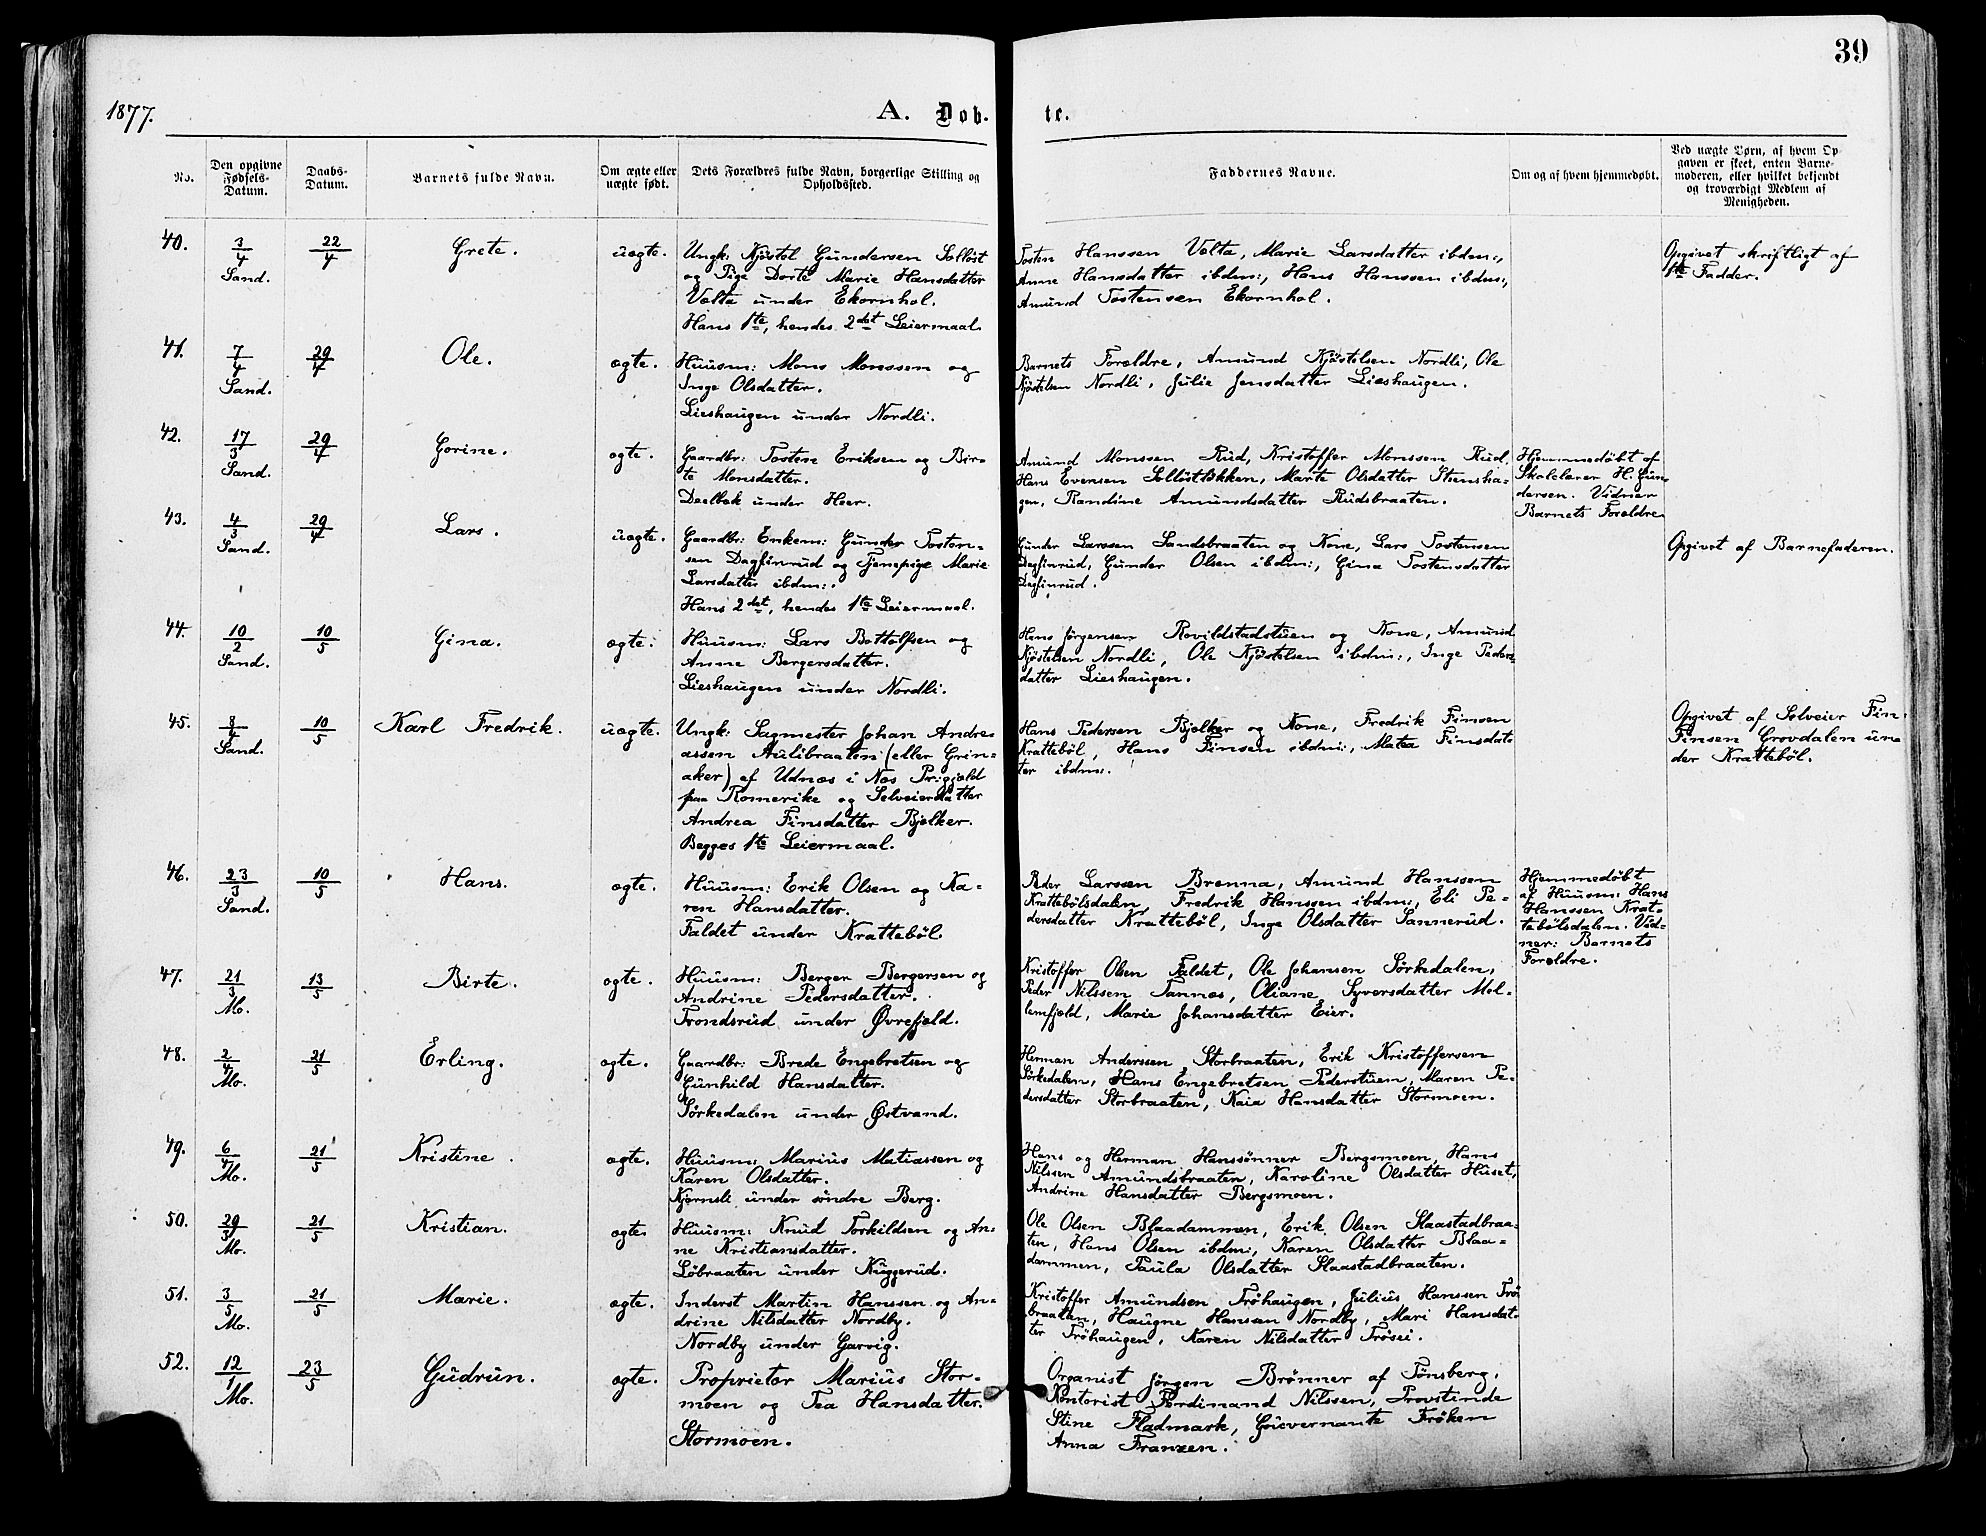 39
1877.
A. Døb-
te.
No.
Den opgivne
Fødsels-
Datum.
Daabs-
Datum.
Barnets fulde Navn.
Om ægte eller
uægte født.
Dets Forældres fulde Navn, borgerlige Stilling og
Opholdssted.
Faddernes Navne.
Om og af hvem hjemmedøbt.
Ved uægte Børn, af hvem Op-
gaven er skeet, enten Barne-
moderen, eller hvilket bekjendt
og troværdigt Medlem af
Menigheden.
40.
3/4
Sand.
22/4
Grete.
uægte.
Ungk: Kjøstel Gundersen Solløst
og Pige Dorte Marie Hansdatter
Velta under Ekornhol.
Hans 1te, hendes 2det Leiermaal.
Tosten Hanssen Velta, Marie Larsdatter ibdm:,
Anne Hansdatter ibdm:, Hans Hanssen ibdm:,
Amund Tostensen Ekornhol.
Opgivet skriftligt af
1te Fadder.
41.
7/4
Sand.
29/4
Ole.
ægte.
Huusm: Mons Monssen og
Inge Olsdatter.
Lieshaugen under Nordli.
Barnets Forældre, Amund Kjøstelsen Nordli, Ole
Kjøstelsen Nordli, Julie Jensdatter Lieshaugen.
42.
17/3
Sand.
29/4
Gorine.
ægte.
Gaardbr: Tosten Eriksen og Bir-
te Monsdatter.
Deelbek under Heer.
Amund Monssen Rud, Kristoffer Monssen Rud,
Hans Evensen Solløstløkken, Marte Olsdatter Stensha-
gen, Randine Amundsdatter Rudsbraaten.
Hjemmedøbt af
Skolelærer H. Gun-
dersen. Vidner
Barnets Forældre
43.
4/3
Sand.
29/4
Lars.
uægte.
Gaardbr: Enkem: Gunder Tosten-
sen Dagfinrud og Tjenepige Marie
Larsdatter ibdm:.
Hans 2det, hendes 1te Leiermaal.
Gunder Larssen Sandsbraaten og Kone, Lars Tostensen
Dagfinrud, Gunder Olsen ibdm:, Gina Tostensdatter
Dagfinrud.
Opgivet af Barnefaderen.
44.
10/2
Sand.
10/5
Gina.
ægte.
Huusm: Lars Bottolfsen og
Anne Bergersdatter.
Lieshaugen under Nordli.
Hans Jørgensen Rovildstadstuen og Kone, Amund
Kjøstelsen Nordli, Ole Kjøstelsen ibdm:, Inge Peders-
datter Lieshaugen.
45.
8/4
Sand.
10/5
Karl Fredrik.
uægte.
Ungk: Sagmester Johan Andre-
assen Aulibraaten (eller Grin-
aker) af Udnæs i Næs Pr:gjæld
paa Romerike og Selveierdatter
Andrea Finsdatter Bjelker.
Begges 1te Leiermaal.
Hans Pedersen Bjelker og Kone, Fredrik Finsen
Kratteböl, Hans Finsen ibdm:, Matea Finsdat-
ter ibdm:.
Opgivet af Selveier Fin
Finsen Grovdalen un-
der Kratteböl.
46.
23/3
Sand.
10/5
Hans.
ægte.
Huusm: Erik Olsen og Ka-
ren Hansdatter.
Faldet under Kratteböl.
Peder Larssen Brenna, Amund Hanssen
Krattebölsdalen, Fredrik Hanssen ibdm:, Eli Pe-
dersdatter Kratteböl, Inge Olsdatter Sannerud.
Hjemmedøbt
af Huusm: Hans
Hanssen Krat-
tebölsdalen. Vid-
ner: Barnets
Forældre.
47.
21/3
Mo.
13/5
Birte.
ægte.
Huusm: Berger Bergersen og
Andrine Pedersdatter.
Trondsrud under Øvrefjeld.
Kristoffer Olsen Faldet, Ole Johansen Sörkedalen,
Peder Nilssen Tannæs, Oliane Syversdatter Mel-
lemfjeld, Marie Johansdatter Eier.
48.
2/4
Mo.
21/5
Erling.
ægte.
Gaardbr: Brede Engebretsen og
Gunhild Hansdatter.
Sörkedalen under Østvand.
Herman Anderssen Storbraaten, Erik Kristoffersen
Sörkedalen, Hans Engebretsen Pederstuen, Maren Pe-
dersdatter Storbraaten, Kaia Hansdatter Stormoen.
49.
6/4
Mo.
21/5
Kristine.
ægte.
Huusm: Marius Matiassen og
Karen Olsdatter.
Kjernsli under söndre Berg.
Hans og Herman Hanssönner Bergsmoen, Hans
Nilssen Amundsbraaten, Karoline Olsdatter Huset,
Andrine Hansdatter Bergsmoen.
50.
29/3
Mo.
21/5
Kristian.
ægte.
Huusm: Knud Torkildsen og An-
ne Kristiansdatter.
Löbraaten under Kuggerud.
Ole Olsen Blaadammen, Erik Olsen Slaastadbraa-
ten, Hans Olsen ibdm:, Karen Olsdatter Blaa-
dammen, Paula Olsdatter Slaastadbraaten.
51.
3/5
Mo.
21/5
Marie.
ægte.
Inderst Martin Hanssen og An-
drine Nilsdatter Nordby.
Nordby under Garvig.
Kristoffer Amundsen Tröhaugen, Julius Hanssen Trö-
braaten, Haugne Hansen Nordby, Mari Hansdat-
ter Tröhaugen, Karen Nilsdatter Trösei.
52.
12/1
Mo.
23/5
Gudrun.
ægte.
Proprietær Marius Stor-
moen og Tea Hansdatter.
Stormoen.
Organist Jørgen Brønner af Tönsberg,
Kontorist Ferdinand Nilssen, Provstinde
Stine Fladmark, Gouvernante Frøken
Anna Franzen.